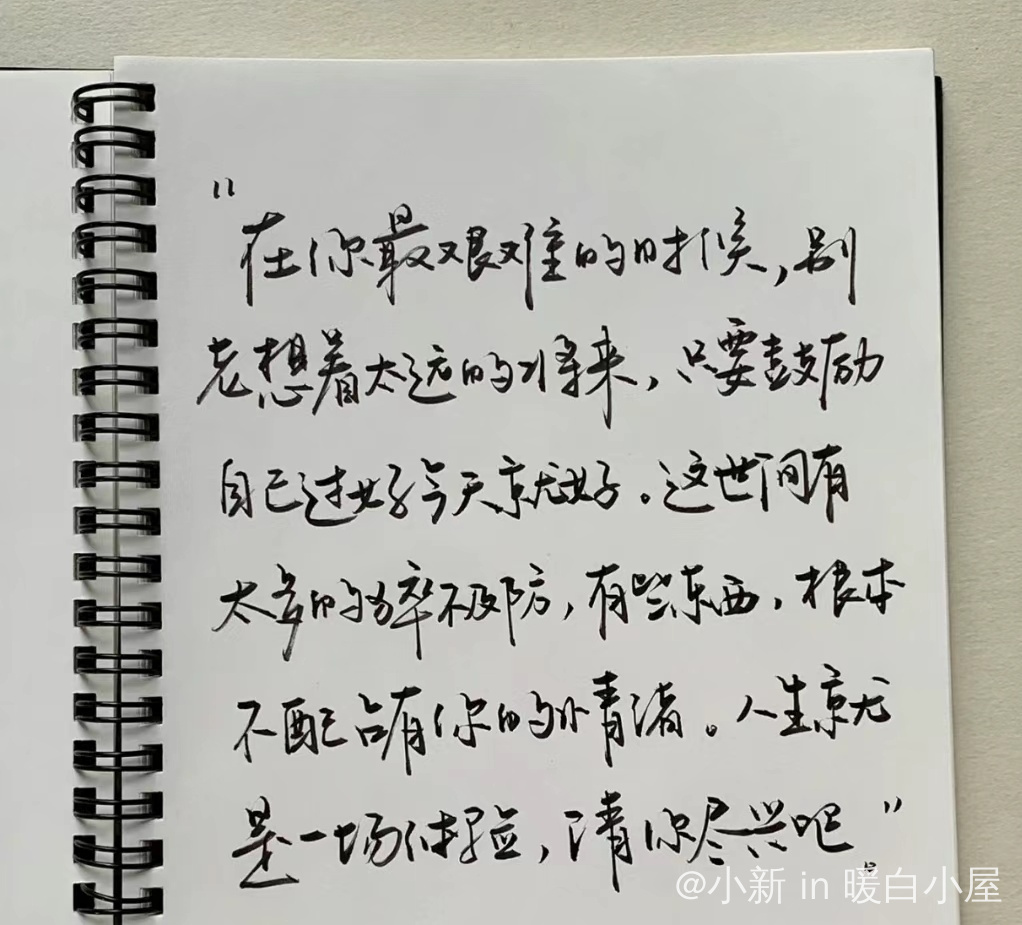 “在你最艰难的时候,别
老想着太远的将来,只要鼓励
自己过好今天就好。这世间有
太多的猝不及防,有些东西,根本
不配占有你的情绪。人生就
是一场体验,请你尽兴吧”
@小新 in 暖白小屋